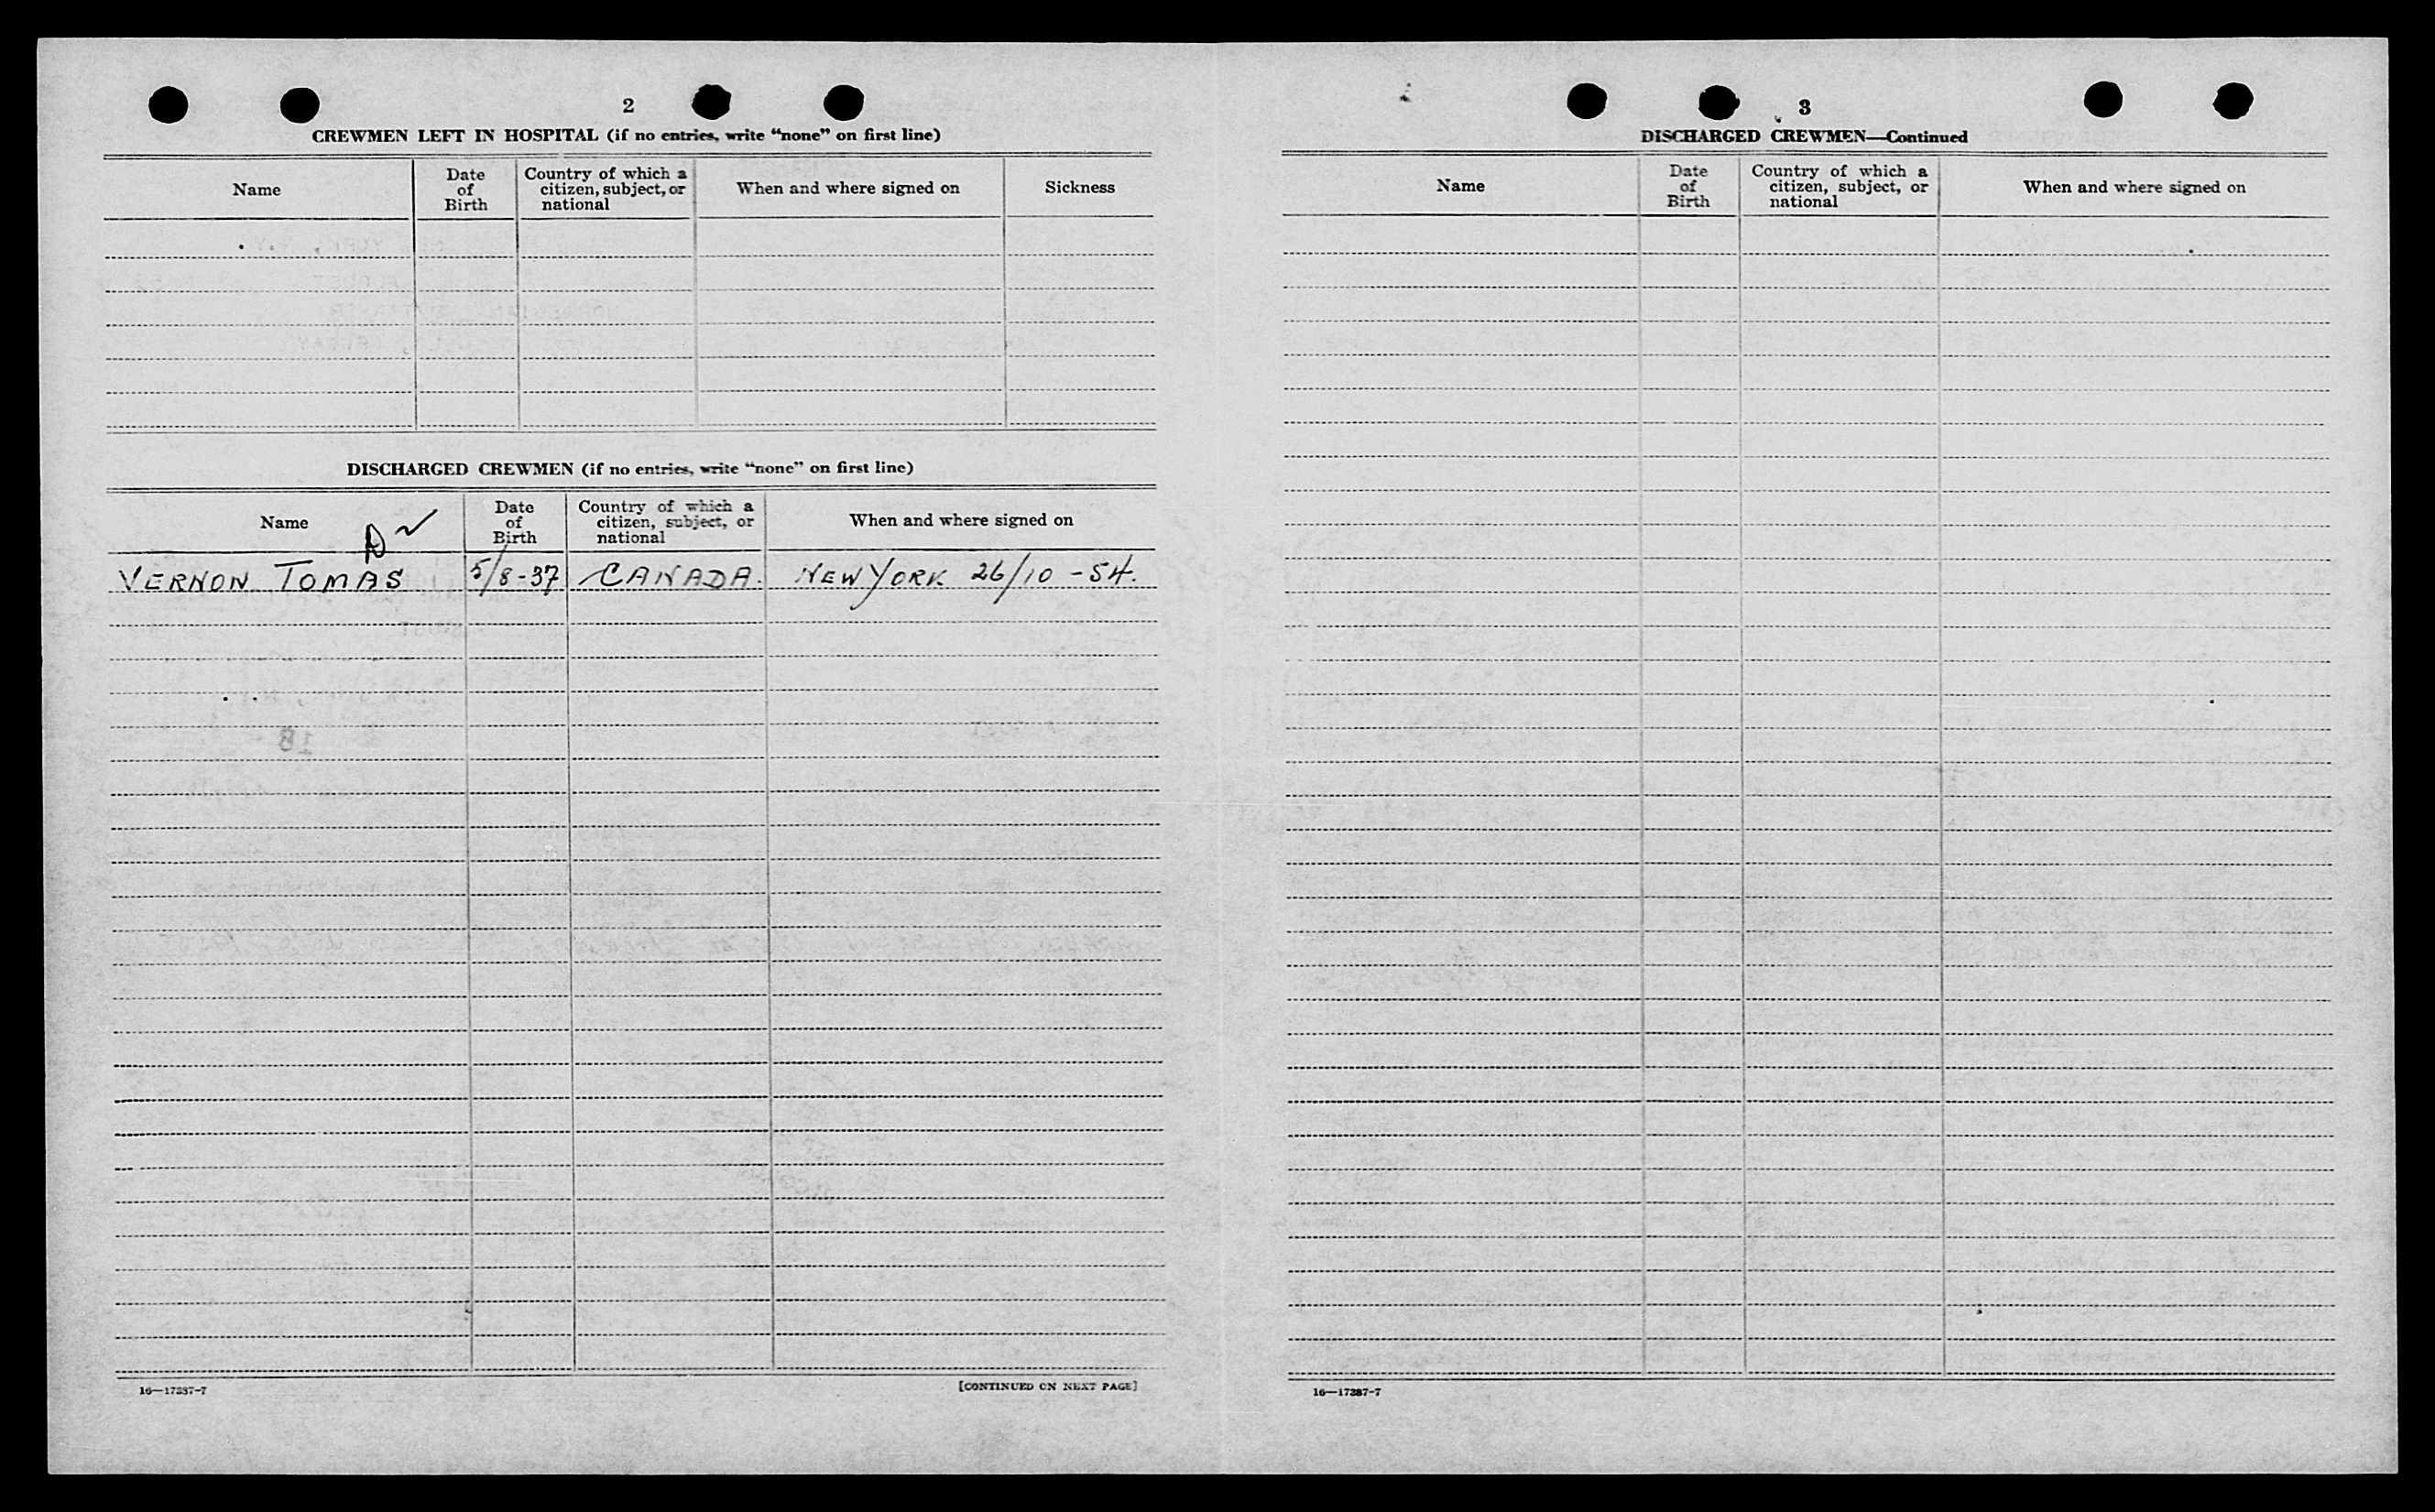 2
CREWMEN LEFT IN HOSPITAL (if no entries, write “none” on first line)
Name
Date of Birth
Country of which a citizen, subject, or national
When and where signed on
Sickness
DISCHARGED CREWMEN (if no entries, write “none” on first line)
Name
Date of Birth
Country of which a citizen, subject, or national
When and where signed on
VERNON TOMAS 5/8-37 CANADA. NEW YORK 26/10 -54.
18
16—17287-7
[CONTINUED ON NEXT PAGE]
3
DISCHARGED CREWMEN—Continued
Name
Date of Birth
Country of which a citizen, subject, or national
When and where signed on
16—17287-7